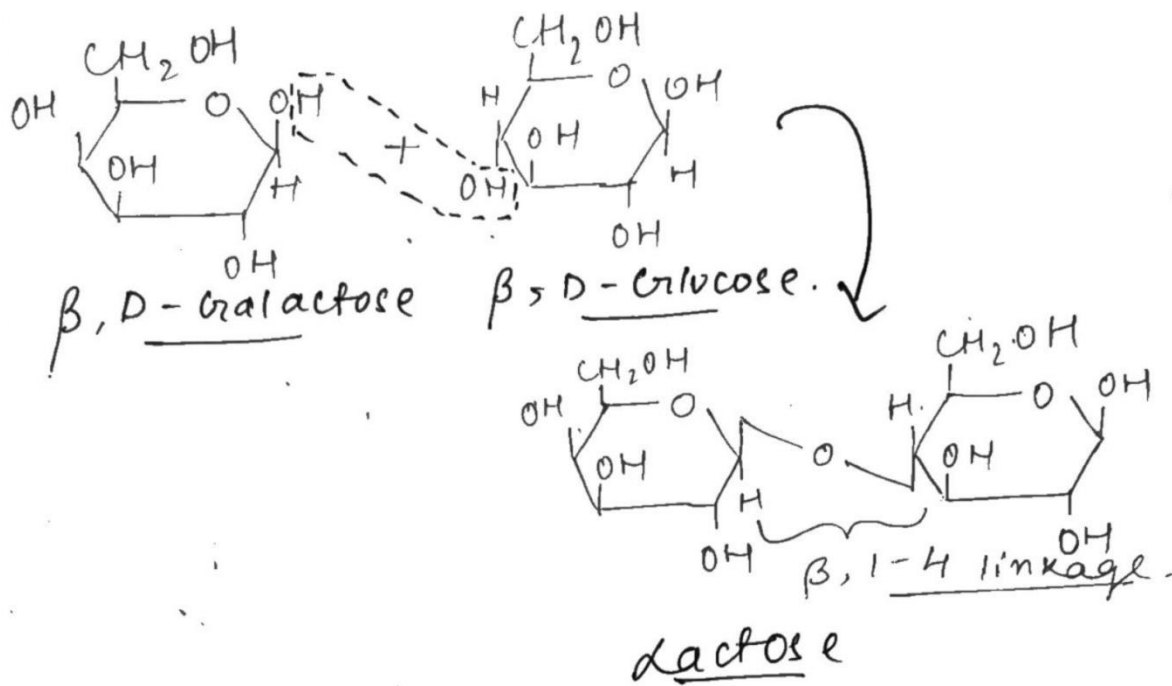 CH₂OH CH₂OH
OH O OH H O OH
OH + OH H
H OH
OH OH
β, D-Galactose β, D-Glucose.
CH₂OH CH₂·OH
OH O H. O OH
OH O OH
H
OH OH
β, 1-4 linkage.
Lactose